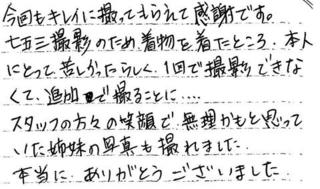 今回もキレイに撮ってもられて感謝です。
七五三撮影のため着物を着たところ、本人
にとって苦しかったらしく、1回で撮影できな
くて、追加で撮ることに….
スタッフの方々の笑顔で無理かもと思って
いた姉妹の写真も撮れました。
本当に、ありがとうございました